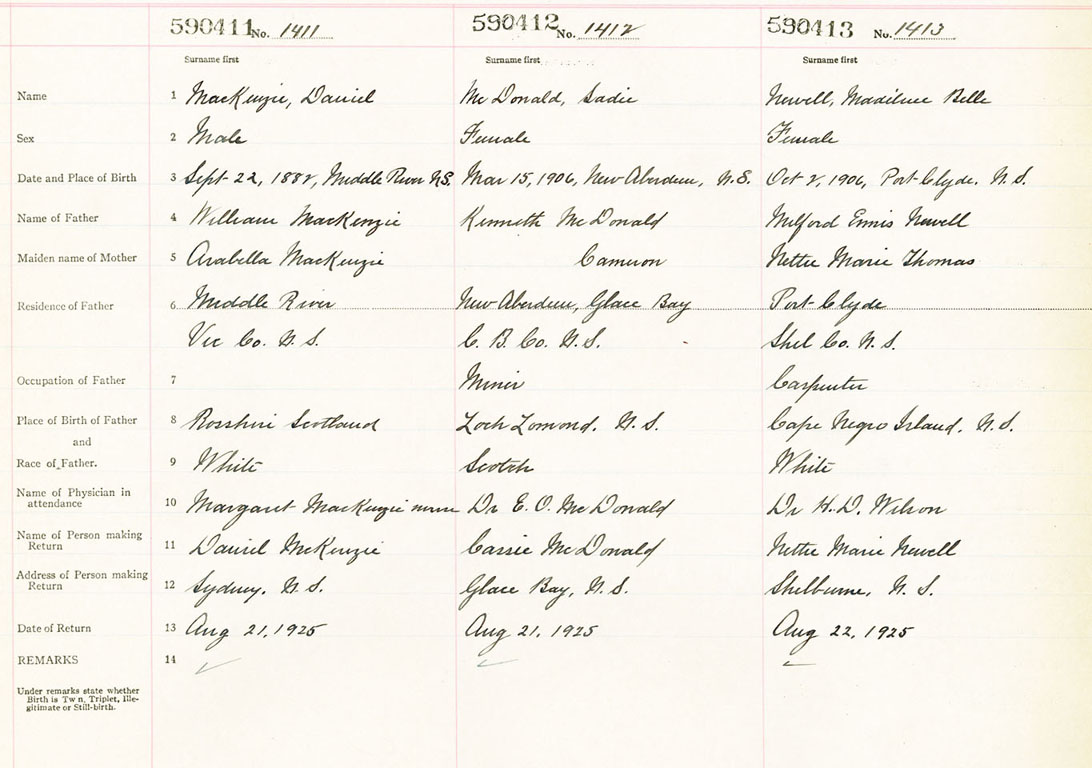 590411 No. 1411 590412 No. 1412 590413 No. 1413
Surname first Surname first Surname first
Name 1 MacKenzie, Daniel McDonald, Sadie Newell, Madilene Belle
Sex 2 Male Female Female
Date and Place of Birth 3 Sept 22, 1882, Middle River N.S. Mar 15, 1906, New Aberdeen, N.S. Oct 2, 1906, Port Clyde. N.S.
Name of Father 4 William MacKenzie Kenneth McDonald Milford Ennis Newell
Maiden name of Mother 5 Arabella MacKenzie Cameron Nettie Marie Thomas
Residence of Father 6 Middle River New Aberdeen, Glace Bay Port Clyde
Vic Co. N.S. C. B. Co. N.S. Shel Co. N.S.
Occupation of Father 7 Miner Carpenter
Place of Birth of Father 8 Rosshire Scotland Loch Lomond. N.S. Cape Negro Island. N.S.
and
Race of Father. 9 White Scotch White
Name of Physician in
attendance 10 Margaret MacKenzie nurse Dr E. O. McDonald Dr H. D. Wilson
Name of Person making
Return 11 Daniel McKenzie Cassie McDonald Nettie Marie Newell
Address of Person making
Return 12 Sydney. N.S. Glace Bay, N.S. Shelburne, N.S.
Date of Return 13 Aug 21, 1925 Aug 21, 1925 Aug 22, 1925
REMARKS 14
Under remarks state whether
Birth is Tw n, Triplet, Ille-
gitimate or Still-birth.